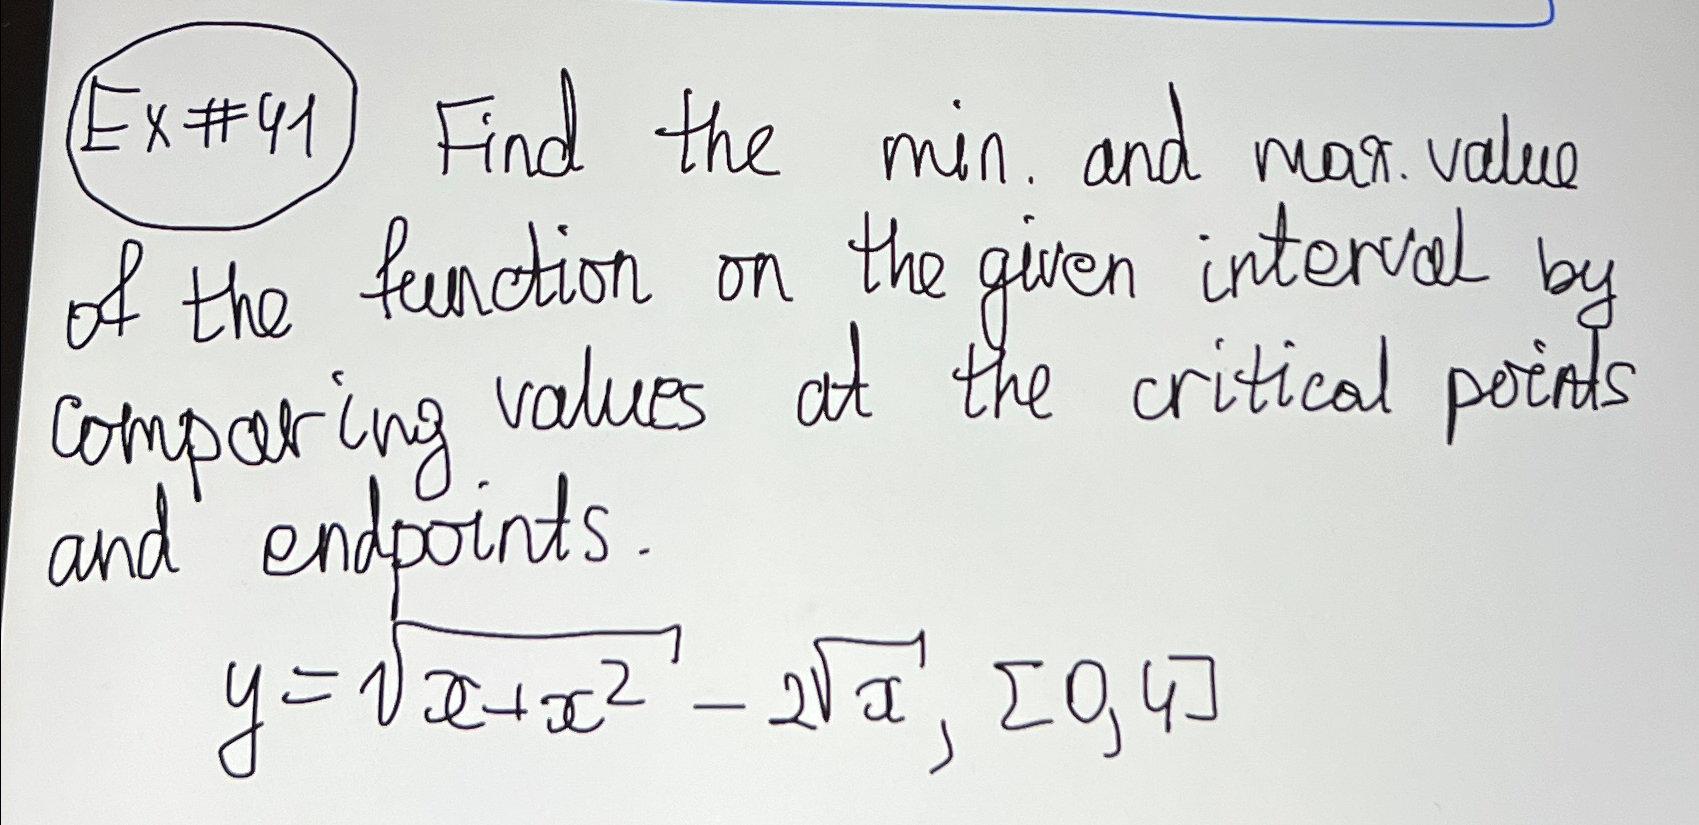 Ex#41 Find the min. and max. value
of the function on the given interval by
comparing values at the critical points
and endpoints.
y=√(x+x²) - 2√x, [0,4]